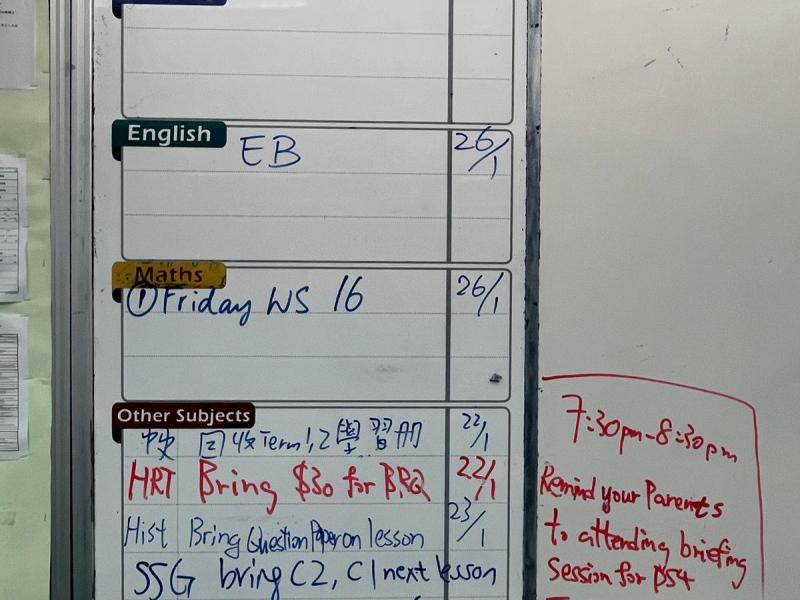 English
EB 26/1
Maths
① Friday WS 16 26/1
Other Subjects
中史 回收Term1,2學習冊 22/1
HRT Bring $30 for BBQ 22/1
Hist Bring Question Paper on lesson 23/1
SSG bring C2, C1 next lesson
7:30pm-8:30pm
Remind your Parents
to attending briefing
Session for